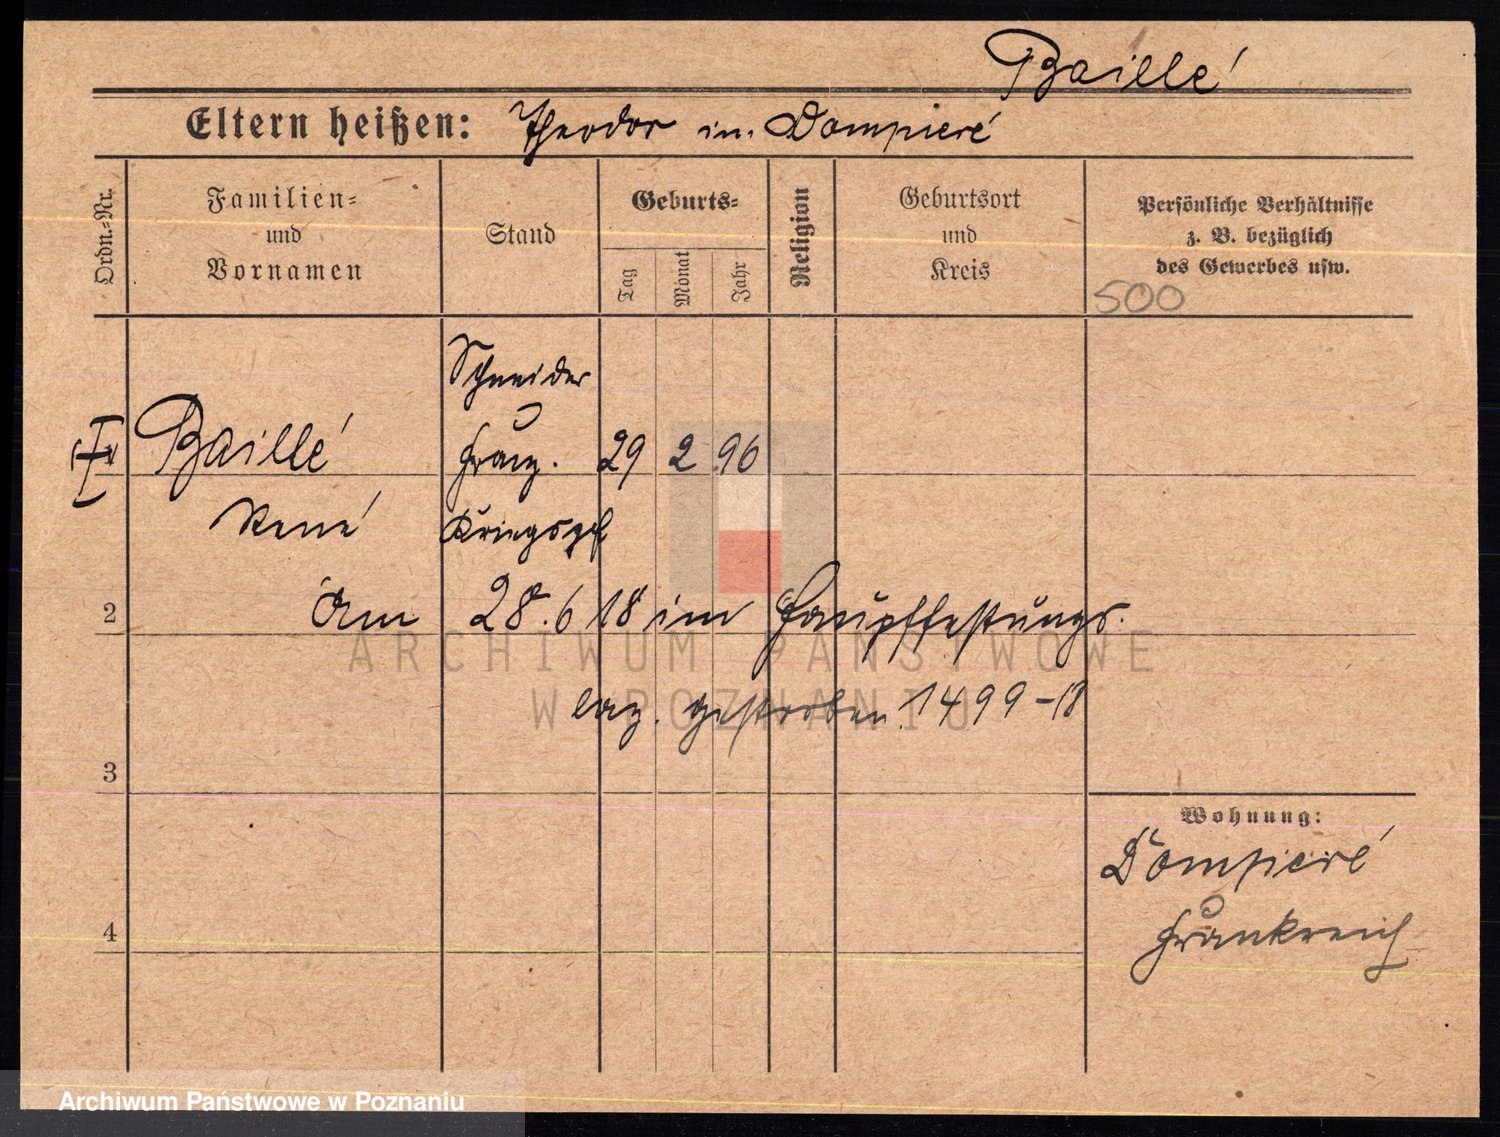 Baillé
Eltern heißen: Theodor in Dompieré
Ordn.-Nr.
Familien-
und
Vornamen
Stand
Geburts-
Tag
Monat
Jahr
Religion
Geburtsort
und
Kreis
Persönliche Verhältnisse
z. B. bezüglich
des Gewerbes usw.
500
Schneider
1 Baillé franz. 29 2 96
René Kriegsgef
2 Am 28.6 18 im Hauptfestungs.
laz. gestorben 1499-18
ARCHIWUM PAŃSTWOWE
W POZNANIU
3
Wohnung:
Dompieré
Frankreich
4
Archiwum Państwowe w Poznaniu